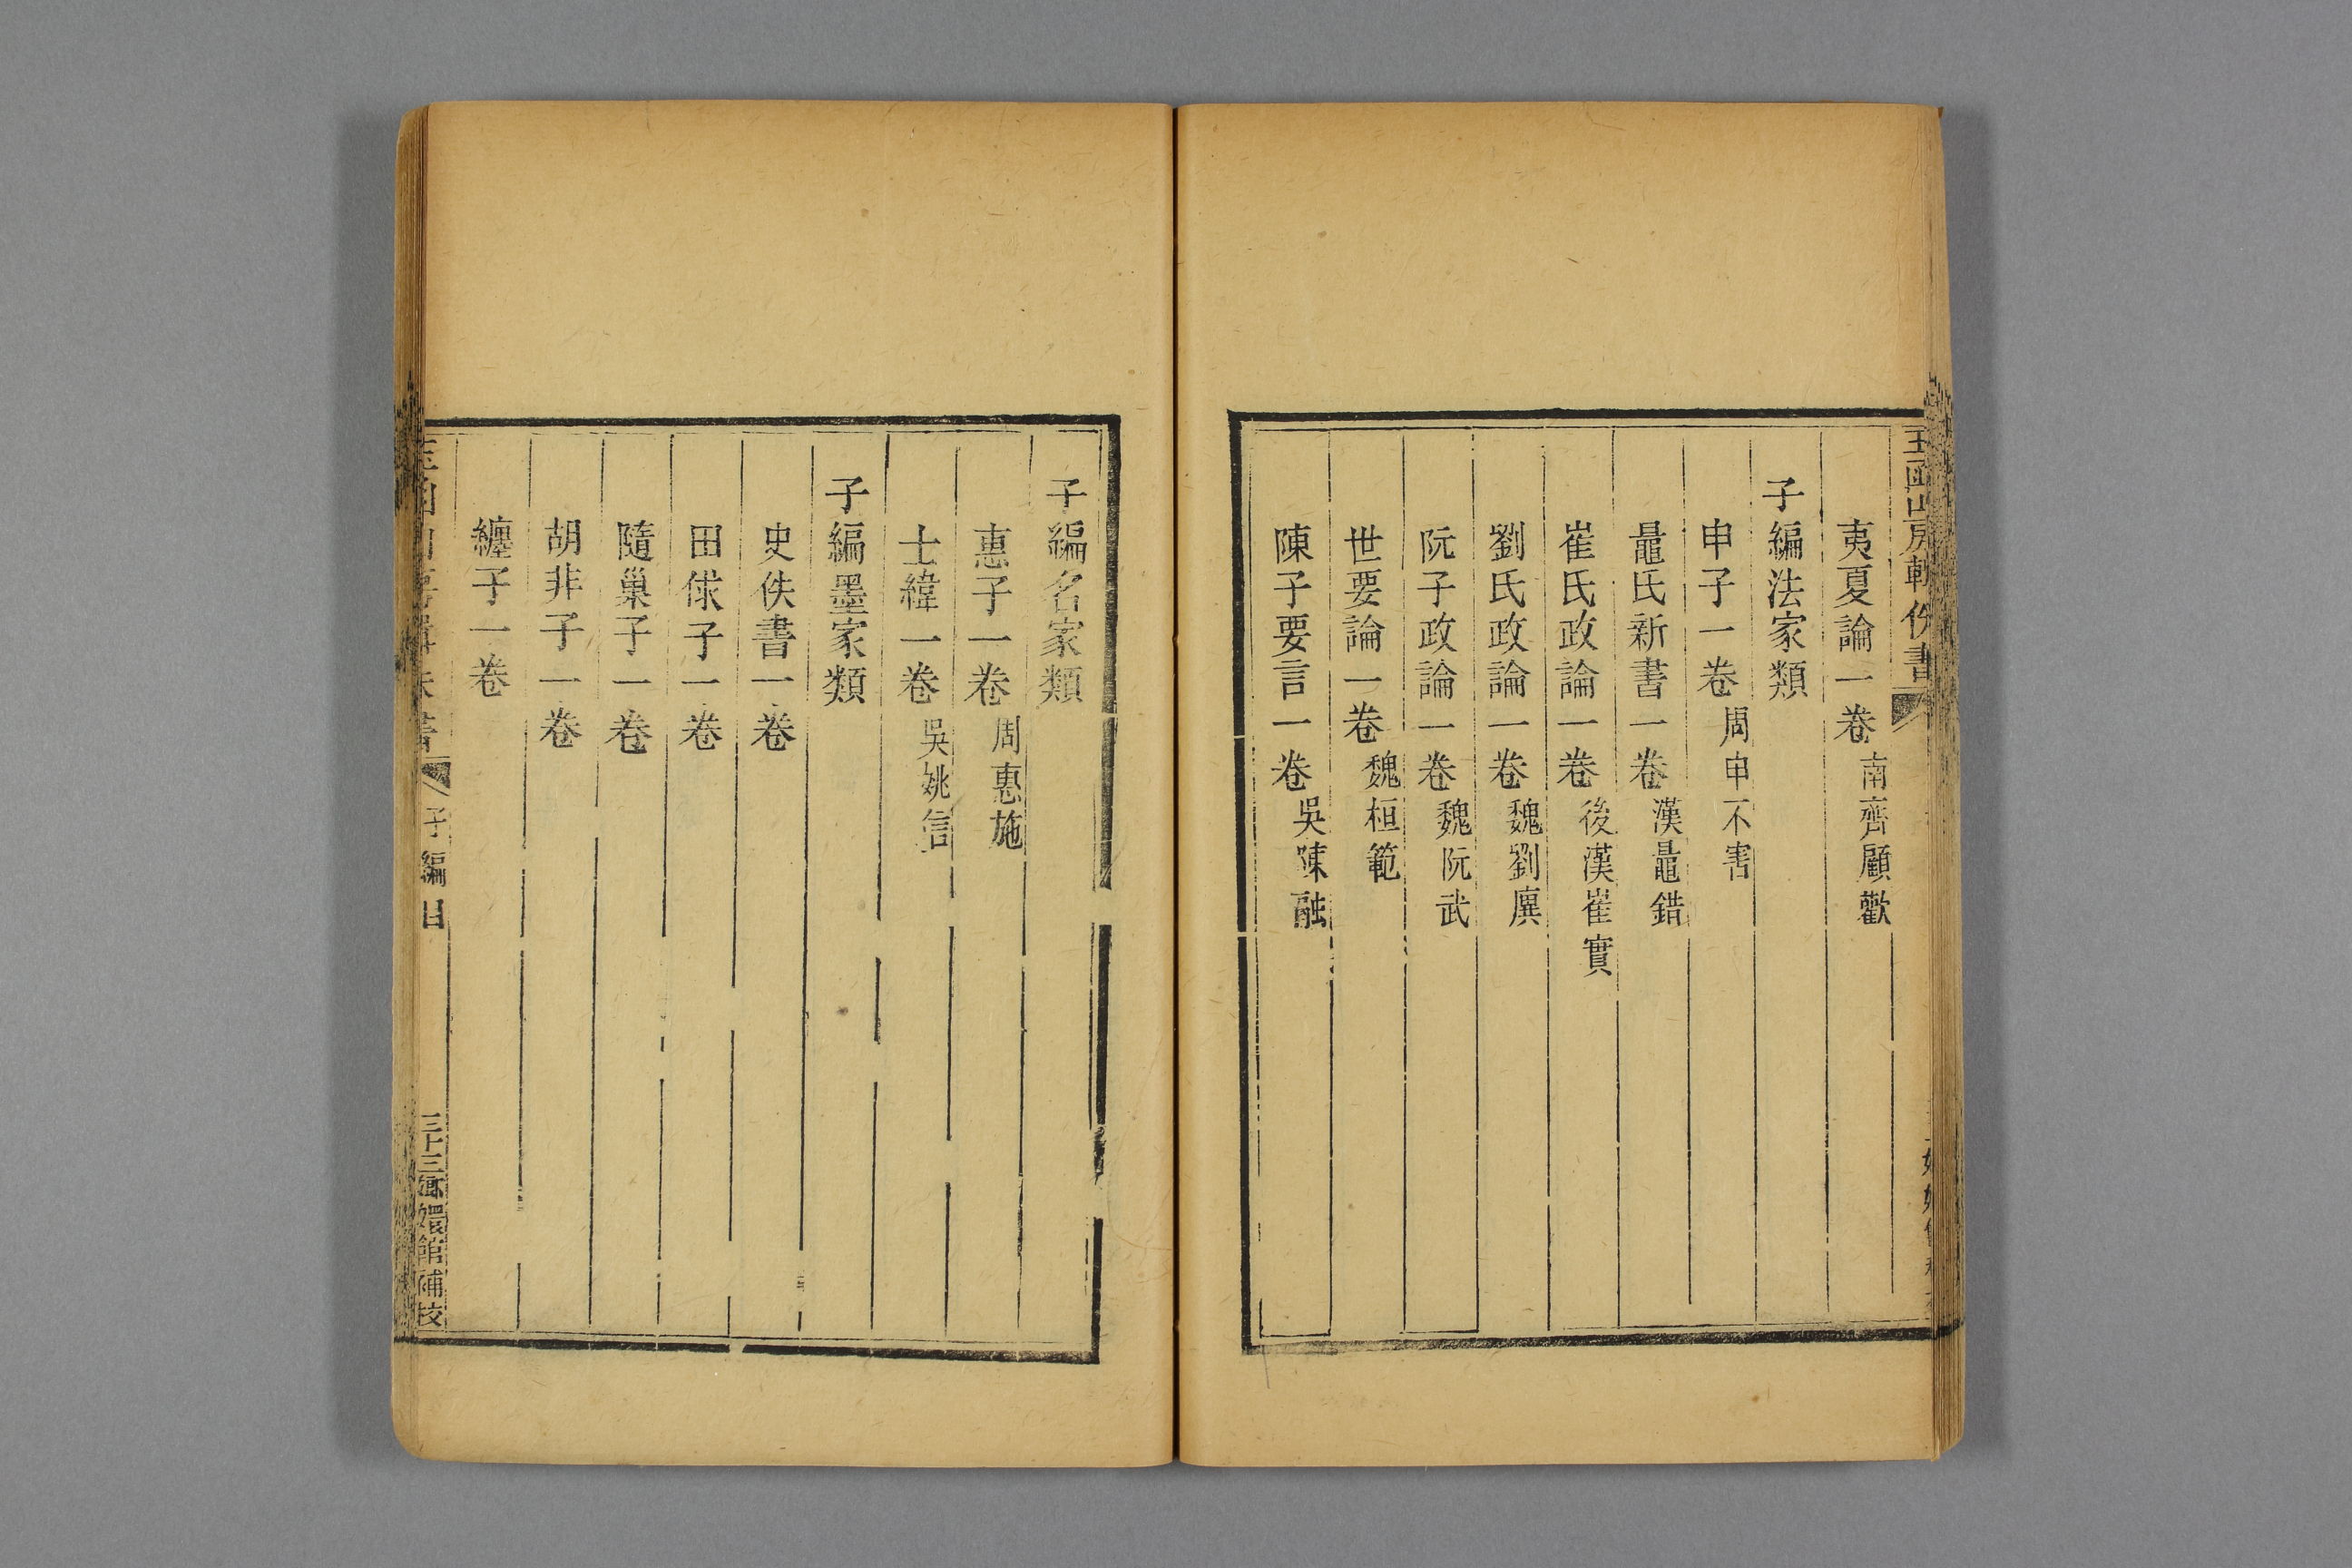 玉函山房輯佚書
夷夏論一卷 南齊顧歡
子編法家類
申子一卷 周申不害
鼂氏新書一卷 漢鼂錯
崔氏政論一卷 後漢崔寔
劉氏政論一卷 魏劉廙
阮子政論一卷 魏阮武
世要論一卷 魏桓範
陳子要言一卷 吳陳融
子編名家類
惠子一卷 周惠施
士緯一卷 吳姚信
子編墨家類
史佚書一卷
田俅子一卷
隨巢子一卷
胡非子一卷
纏子一卷
子編目 三十三 嬛館補校